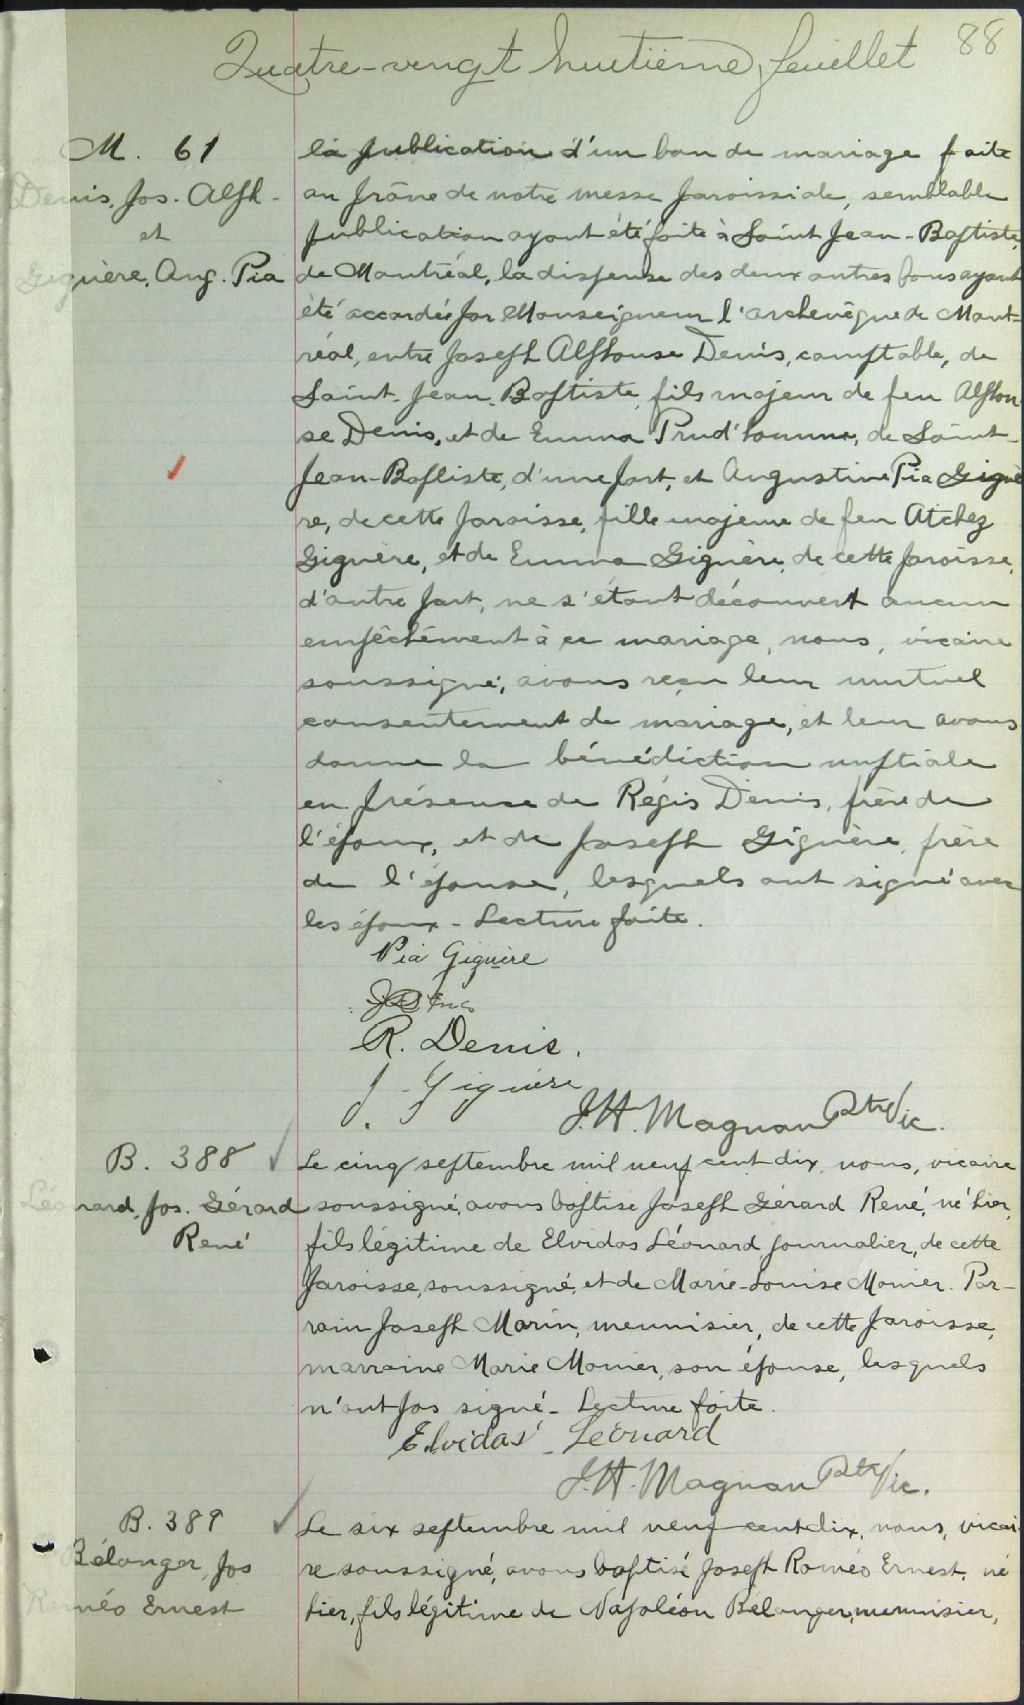 88
Quatre-vingt huitième feuillet
M. 61
Denis, Jos. Alph-
et
Giguère, Aug. Pia
la publication d'un ban de mariage faite
au prône de notre messe paroissiale, semblable
publication ayant été faite à Saint Jean-Baptiste,
de Montréal, la dispense des deux autres bans ayant
été accordée par Monseigneur l'archevêque de Mont-
réal, entre Joseph Alphonse Denis, comptable, de
Saint-Jean-Baptiste, fils majeur de feu Alphon-
se Denis, et de Emma Prud'homme, de Saint-
Jean-Baptiste, d'une part, et Augustine Pia Giguè
re, de cette paroisse, fille majeure de feu Atchez
Giguère, et de Emma Giguère, de cette paroisse,
d'autre part, ne s'étant découvert aucun
empêchement à ce mariage, nous, vicaire
soussigné, avons reçu leur mutuel
consentement de mariage, et leur avons
donné la bénédiction nuptiale
en présence de Régis Denis, frère de
l'époux, et de Joseph Giguère, frère
de l'épouse, lesquels ont signé avec
les époux - Lecture faite.
Pia Giguère
R. Denis.
J. Giguère
J.H. Magnan Ptre Vic.
B. 388
Léonard, Jos. Gérard
René
Le cinq septembre mil neuf cent dix, nous, vicaire
soussigné, avons baptisé Joseph Gérard René, né hier,
fils légitime de Elvidas Léonard, journalier, de cette
paroisse, soussigné, et de Marie-Louise Monier. Par-
rain Joseph Marin, menuisier, de cette paroisse,
marraine Marie Monier, son épouse, lesquels
n'ont pas signé - Lecture faite.
Elvidas Léonard
J.H. Magnan Ptre Vic.
B. 389
Bélanger, Jos
Roméo Ernest
Le six septembre mil neuf cent dix, nous, vicai-
re soussigné, avons baptisé Joseph Roméo Ernest, né
hier, fils légitime de Napoléon Bélanger, menuisier,